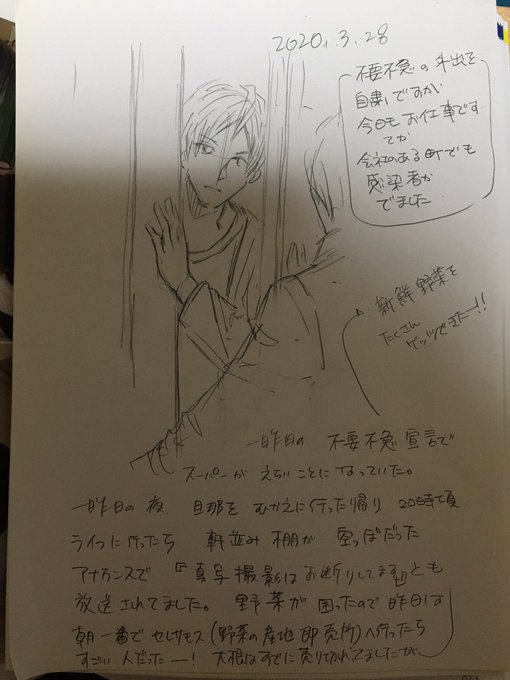 2020.3.28
不要不急の外出を
自粛ですが
今日もお仕事です
てか
会社のある町でも
感染者が
でました
新鮮野菜を
たくさん
ゲッツできたー!!
一昨日の 不要不急宣言で
スーパーが えらいことになっていた。
一昨日の夜 旦那を むかえに行った帰り 20時頃
ライフに行ったら 軒並み棚が 空っぽだった
アナウンスで 『真写撮影はお断りしてます』とも
放送されてました。 野菜が 困ったので昨日は
朝一番で セレサモス(野菜の産地即売所)へ行ったら
すごい人だったー! 大根はすでに売り切れてましたが、